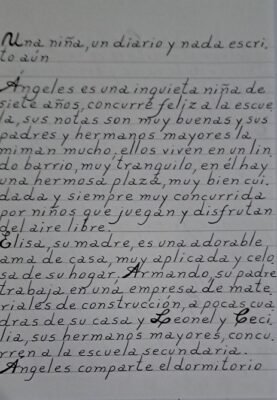 Una niña, un diario y nada escri
to aún
Ángeles es una inquieta niña de
siete años, concurre feliz a la escue
la, sus notas son muy buenas y sus
padres y hermanos mayores la
miman mucho, ellos viven en un lin
do barrio, muy tranquilo, en él hay
una hermosa plaza, muy bien cui.
dada y siempre muy concurrida
por niños que juegan y disfrutan
del aire libre.
Elisa, su madre, es una adorable
ama de casa, muy aplicada y celo
sa de su hogar, Armando, su padre
trabaja en una empresa de mate
riales de construcción, a pocas cua
dras de su casa y Leonel y Ceci
lia, sus hermanos mayores, concu.
rren a la escuela secundaria.
Angeles comparte el dormitorio